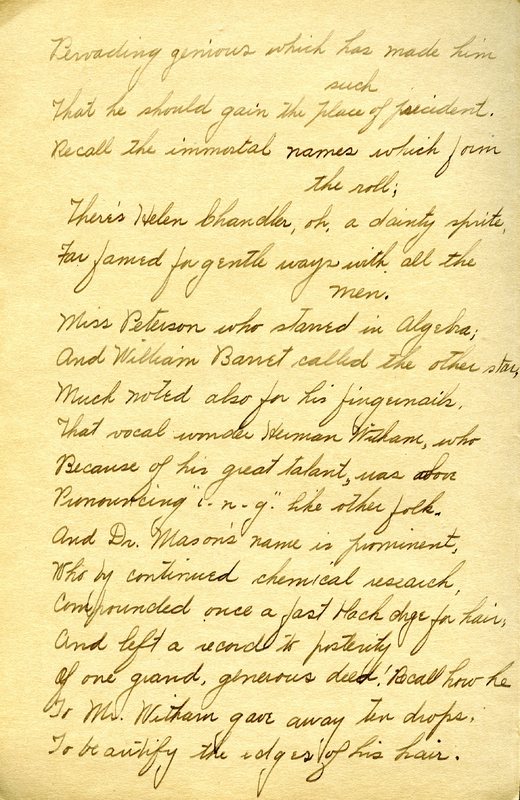 Pervading genious which has made him
such
That he should gain the place of president.
Recall the immortal names which form
the roll;
There's Helen Chandler, oh, a dainty sprite,
Far famed for gentle ways with all the
men.
Miss Peterson who starred in Algebra;
And William Barret called the other star,
Much noted also for his fingernails.
That vocal wonder Herman Witham, who
Because of his great talant, was above
Pronouncing "i-n-g" like other folk.
And Dr. Mason's name is prominent,
Who by continued chemical research,
Compounded once a fast black dye for hair,
And left a record to posterity
Of one grand, generous deed! Recall how he
To Mr. Witham gave away ten drops,
To beautify the edges of his hair.